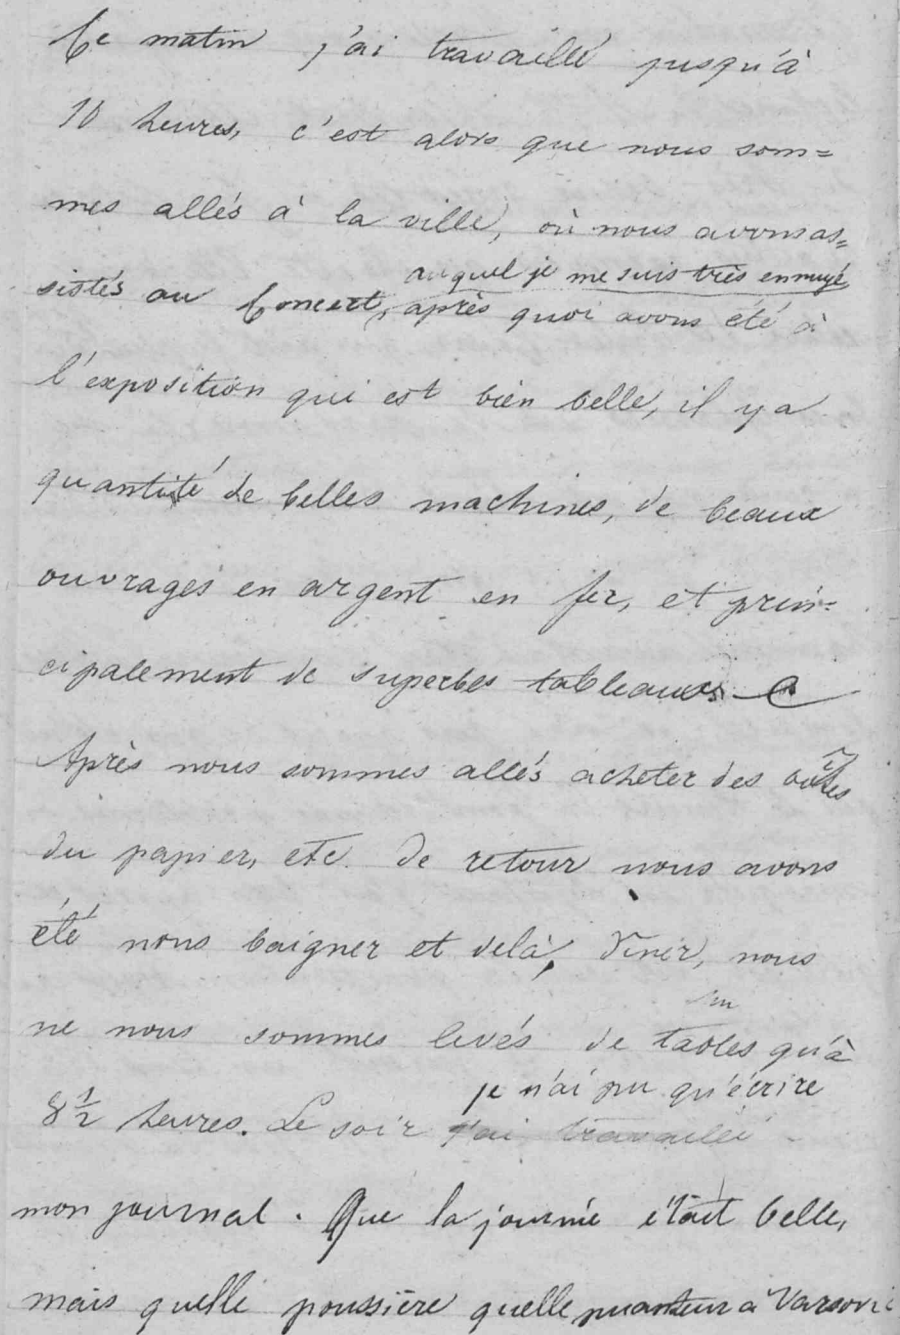 Ce matin j'ai travaillé jusqu'à
10 heures, c'est alors que nous som=
mes allés à la ville, où nous avons as=
auquel je me suis très ennuyé
sistés au Concert, après quoi avons été à
l'exposition qui est bien belle, il y a
quantité de belles machines, de beaux
ouvrages en argent en fer, et prin=
cipalement de superbes tableaux.
Après nous sommes allés acheter des
du papier, etc. De retour nous avons
été nous baigner et delà, diner, nous
ne nous sommes levés de tables qu'à
je n'ai pu qu'écrire
8 1/2 heures. Le soir j'ai travaillé
mon journal. Que la journée était belle,
mais quelle poussière quelle puanteur à Varsovie